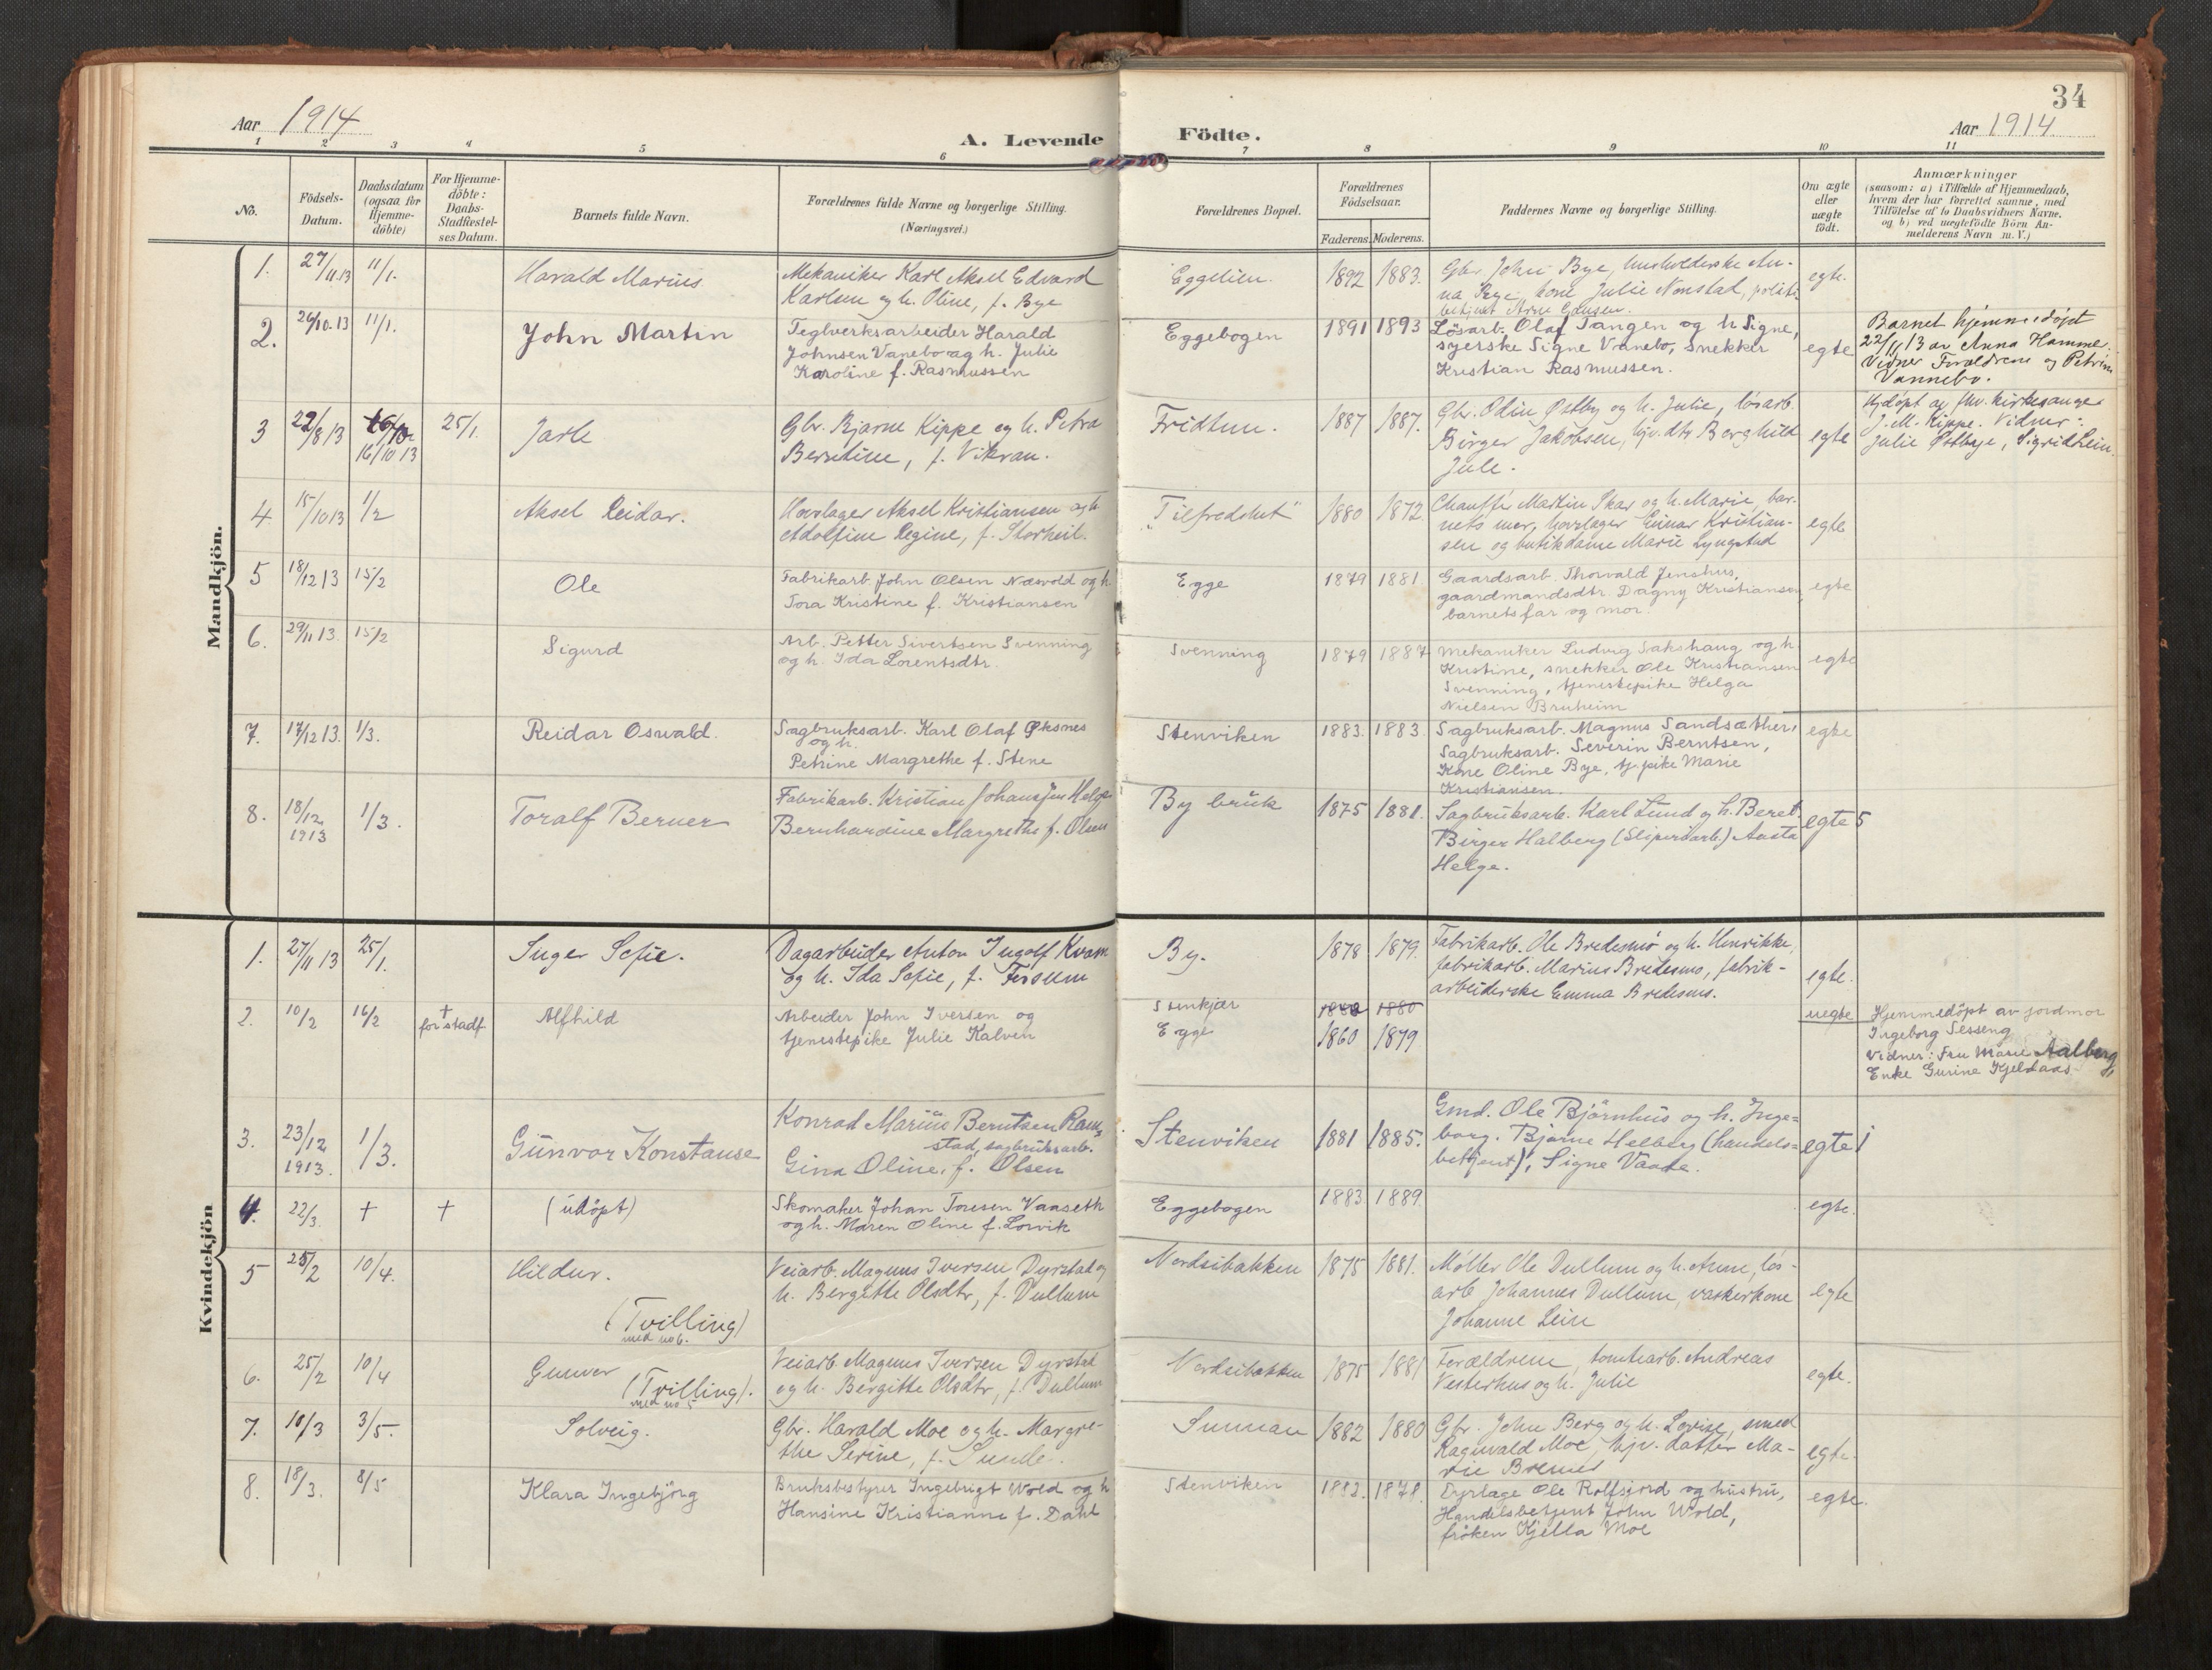 34
Aar 1914
A. Levende Födte.
Aar 1914
1 2 3 4 5 6 7 8 9 10 11
No.
Födsels-Datum.
Daabsdatum (ogsaa for Hjemme-döbte)
For Hjemme-döbte: Daabs-Stadfæstel-ses Datum.
Barnets fulde Navn.
Forældrenes fulde Navne og borgerlige Stilling.
(Næringsvei.)
Forældrenes Bopæl.
Forældrenes Födselsaar.
Faderens. Moderens.
Faddernes Navne og borgerlige Stilling.
Om ægte eller uægte födt.
Anmærkninger
(saasom: a) i Tilfælde af Hjemmedaab,
hvem der har forrettet samme, med
Tilföielse af to Daabsvidners Navne,
og b) ved uægtefödte Börn An-
melderens Navn m. V.)
Mandkjön.
1. 27/11.13 11/1. Harald Marius
Mekaniker Karl Aksel Edvard
Karlsen og h. Oline, f. Bye
Eggelien. 1892 1883.
Gbr. John Bye, husholderske An-
na Bye, kone Julie Nonstad, politi-
betjent Arne
egte.
2. 26/10.13 11/1. John Martin
Teglverksarbeider Harald
Johnsen Vanebo og h. Julie
Karoline f. Rasmussen
Eggebogen 1891 1893
Lösarb. Olaf Tangen og h Signe,
syerske Signe Vanebo, snekker
Kristian Rasmussen.
egte
Barnet hjemmedøpt
22/11 13 av Anna Hamme.
Vidner Foreldrene og Petrine
Vannebo.
3 22/8 13 16/10 13 25/1. Jarle
Gbr. Bjarne Kippe og h. Petra
Berntine, f. Vikran.
Fridtun. 1887 1887.
Gbr. Odin Østby og h. Julie, løsarb.
Birger Jakobsen, hjv. dtr Borghild
Jule.
egte
Hjdøpt af fhv. kirkesanger
J. M. Kippe. Vidner:
Julie Østbye, Sigrid Lein.
4 15/10 13 1/2 Aksel Reidar.
Hovslager Aksel Kristiansen og h
Adolfine Regine, f. Storheil.
"Tilfredshet" 1880 1872
Chauffør Martin Skar og h. Marie, bar-
nets mor, hovslager Einar Kristian-
sen og butikdame Marie Lyngstad
egte
5 18/12 13 15/2 Ole
Fabrikarb John Olsen Næsvold og h.
Tora Kristine f. Kristiansen
Egge 1879 1881
Gaardsarb. Thorvald Jenshus,
gaardmandsdtr. Dagny Kristiansen,
barnets far og mor.
egte
6. 29/11 13. 15/2 Sigurd
Arb. Petter Sivertsen Svenning
og h. Ida Lorentsdtr.
Svenning 1879 1887
Mekaniker Ludvig Sakshaug og h
Kristine, snekker Ole Kristiansen
Svenning, tjenestepike Helga
Nielsen Bruheim
egte
7. 17/12 13. 1/3. Reidar Oswald.
Sagbruksarb. Karl Olaf Øksnes
og h.
Petrine Margrethe f. Stene
Stenviken 1883. 1883.
Sagbruksarb. Magnus Sandsæther,
Sagbruksarb. Severin Berntsen,
Kone Oline Bye, tj. pike Marie
Kristiansen.
egte
8. 18/12 1913 1/3. Toralf Berner
Fabrikarb. Kristian Johansen Helge
Bernhardine Margrethe f. Olsen
By bruk 1875 1881.
Sagbruksarb. Karl Lund og h. Beret
Birger Halberg (Sliperiarb.) Aasta
Helge.
egte 5
Kvindekjön
1. 27/11 13 25/1. Inger Sofie.
Dagarbeider Anton Ingolf Kvam
og h. Ida Sofie, f. Fossum
By. 1878 1879.
Fabrikarb. Ole Bredesmo og h. Henrikke,
fabrikarb. Marius Bredesmo, fabrik-
arbeiderske Emma Bredesmo.
egte.
2. 10/2 16/2 † for stadf. Alfhild
Arbeider John Iversen og
tjenestepike Julie Kalven
Stenkjær 1880
Egge 1860 1879
uegte
Hjemmedöpt av jordmor
Ingeborg Sesseng
Vidner: Fru Marie Aalberg,
Enke Gurine Kjeldaas
3. 23/12 1913. 1/3. Gunvor Konstanse
Konrad Marius Berntsen Ram-
stad, sagbruksarb.
Gina Oline, f. Olsen
Stenviken 1881 1885.
Gmd. Ole Björnhus og h. Inge-
borg. Bjarne Helberg (handels-
betjent), Signe Vaade.
egte 1
4. 22/3. † † (udöpt)
Skomaker Johan Toresen Vaaseth
og h. Maren Oline f. Lorvik
Eggebogen 1883 1889
egte.
5 25/2 10/4. Hildur.
(Tvilling)
med no 6.
Veiarb. Magnus Iversen Dyrstad og
h. Bergitte Olsdtr, f. Dullum
Nordsibakken 1875 1881.
Møller Ole Dullum og h. Anne, løs-
arb Johannes Dullum, vaskerkone
Johanne Lein
egte
6. 25/2 10/4 Gunvor
(Tvilling).
med no 5
Veiarb. Magnus Iversen Dyrstad
og h. Bergitte Olsdtr, f. Dullum
Nordsibakken 1875 1881
Forældrene, tomtearb. Andreas
Vesterhus og h. Julie
egte.
7. 10/3 3/5. Solveig.
Gbr. Harald Moe og h. Margre-
the Serine, f. Sunde.
Sunnan 1882 1880
Gbr. John Berg og h. Lovise, smed
Ragnvald Moe, hjv. datter Ma-
rie Bremes
egte.
8. 18/3. 8/5 Klara Ingebjörg
Bruksbestyrer Ingebrigt Wold og h
Hansine Kristianne f. Dahl
Stenviken 1882. 1878.
Dyrlæge Ole Rolfsjord og hustru,
Handelsbetjent John Wold,
fröken Kjella Moe
egte.